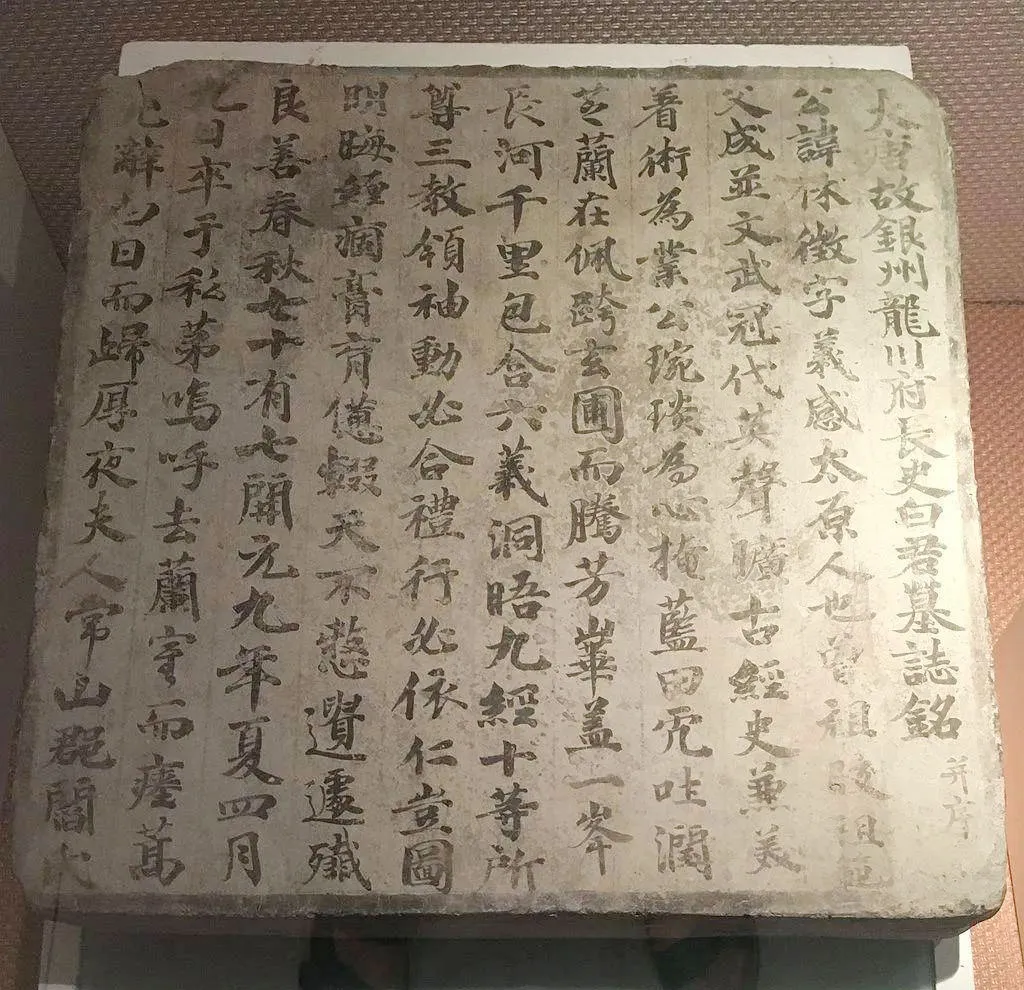 大唐故銀州龍川府長史白君墓誌銘 并序
公諱休徵字義感太原人也曾祖陵祖
父成並文武冠代英聲曠古經史兼美
著術為業公琬琰為心掩藍田而吐潤
芝蘭在佩跨玄圃而騰芳崋蓋一峯
長河千里包含六義洞晤九經十等所
尊三教領袖動必合禮行必依仁豈圖
明晦纏痼膏肓德輟天不慭遺遽殲
良善春秋七十有七開元九年夏四月
九日卒于私第嗚呼去蘭室而瘞萬
日而歸厚夜夫人常山郡閻